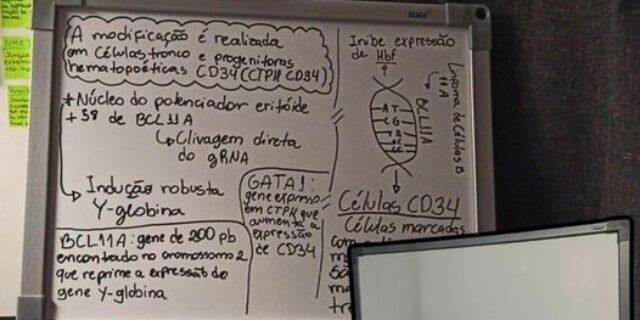 A modificação é realizada
em células tronco e progenitoras
hematopoéticas CD34 (CTPH CD34)
* Núcleo do potenciador eritóide
+58 de BCL11A
↳ Clivagem direta
do gRNA
→ Indução robusta
γ-globina
BCL11A: gene de 200 pb
encontrado no cromossomo 2
que reprime a expressão do
gene γ-globina
GATA1:
gene expresso
em CTPH que
aumenta a
expressão
de CD34
Inibe expressão
de Hbf
BCL11A
Linfoma de Células B
11A
A T
C G
Células CD34
Células marcadas